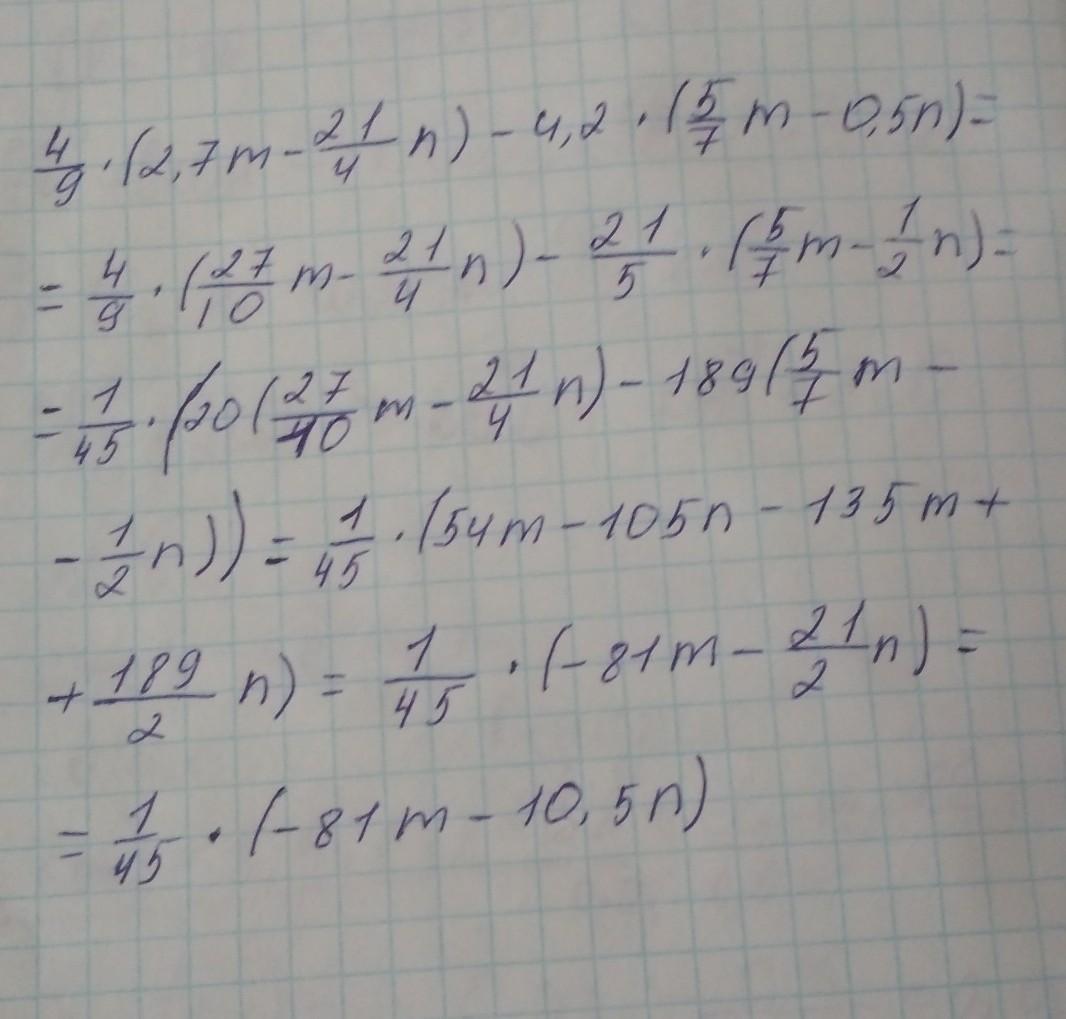 4/9 · (2,7m - 21/4 n) - 4,2 · (5/7 m - 0,5n) =
= 4/9 · (27/10 m - 21/4 n) - 21/5 · (5/7 m - 1/2 n) =
= 1/45 · (20(27/10 m - 21/4 n) - 189(5/7 m -
- 1/2 n)) = 1/45 · (54m - 105n - 135m +
+ 189/2 n) = 1/45 · (-81m - 21/2 n) =
= 1/45 · (-81m - 10,5n)